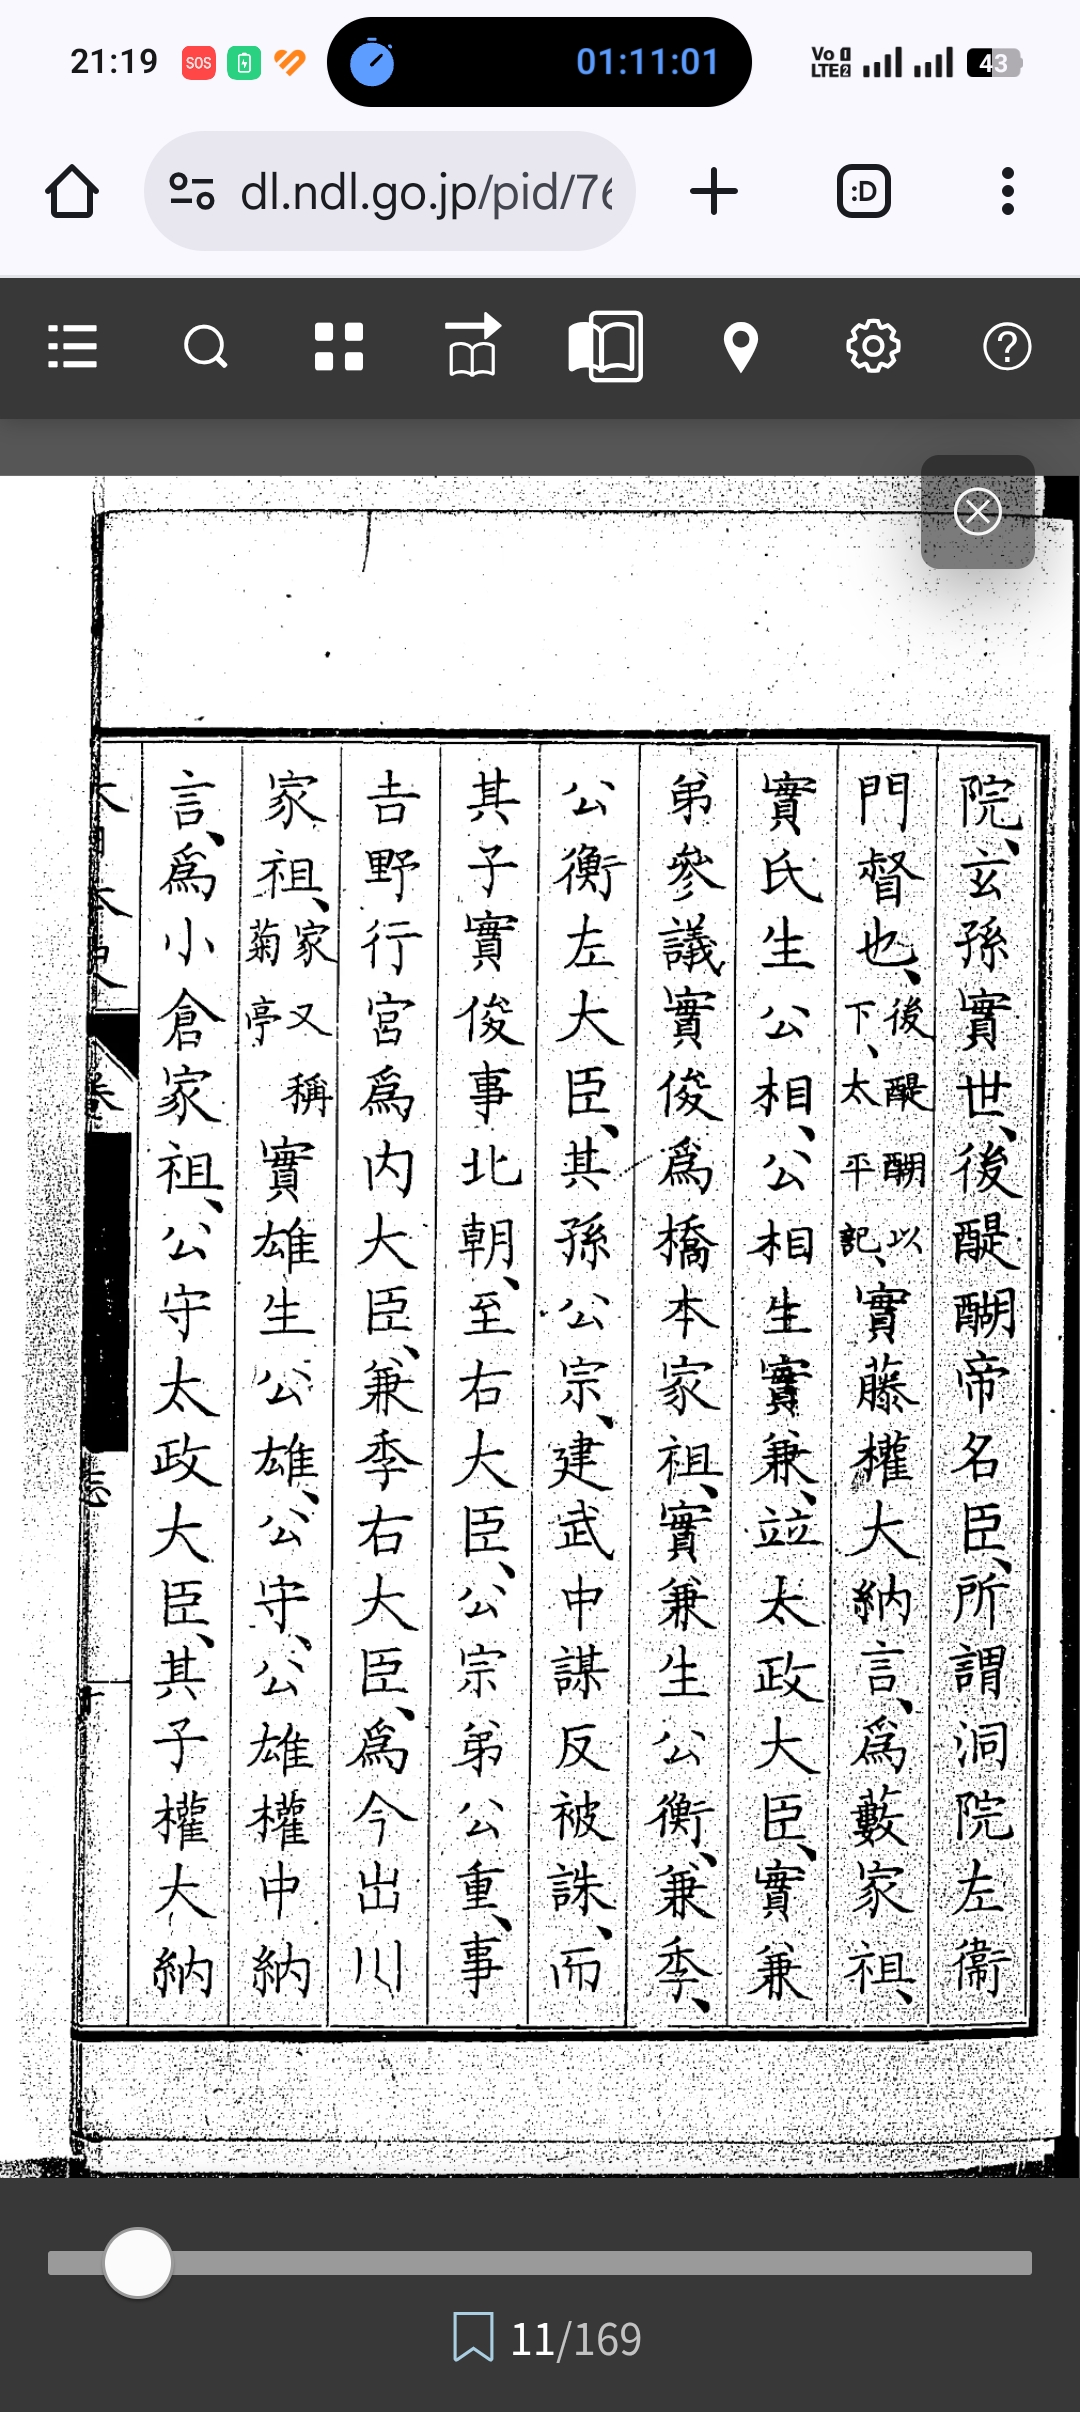 21:19
SOS
01:11:01
Vo LTE2
43
dl.ndl.go.jp/pid/76
:D
院、玄孫實世、後醍醐帝名臣、所謂洞院左衞
門督也、後醍醐以下、太平記、實藤權大納言、爲藪家祖、
實氏生公相、公相生實兼、竝太政大臣、實兼
弟參議實俊爲橋本家祖、實兼生公衡、兼季、
公衡左大臣、其孫公宗、建武中謀反被誅、而
其子實俊事北朝、至右大臣、公宗弟公重、事
吉野行宮爲内大臣、兼季右大臣、爲今出川
家祖、家又稱菊亭實雄生公雄、公守、公雄權中納
言、爲小倉家祖、公守太政大臣、其子權大納
11/169